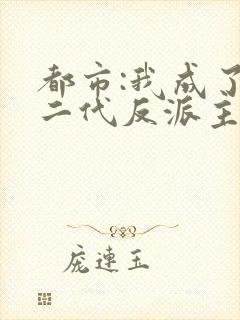 都市:我成了
二代反派主
庞連玉